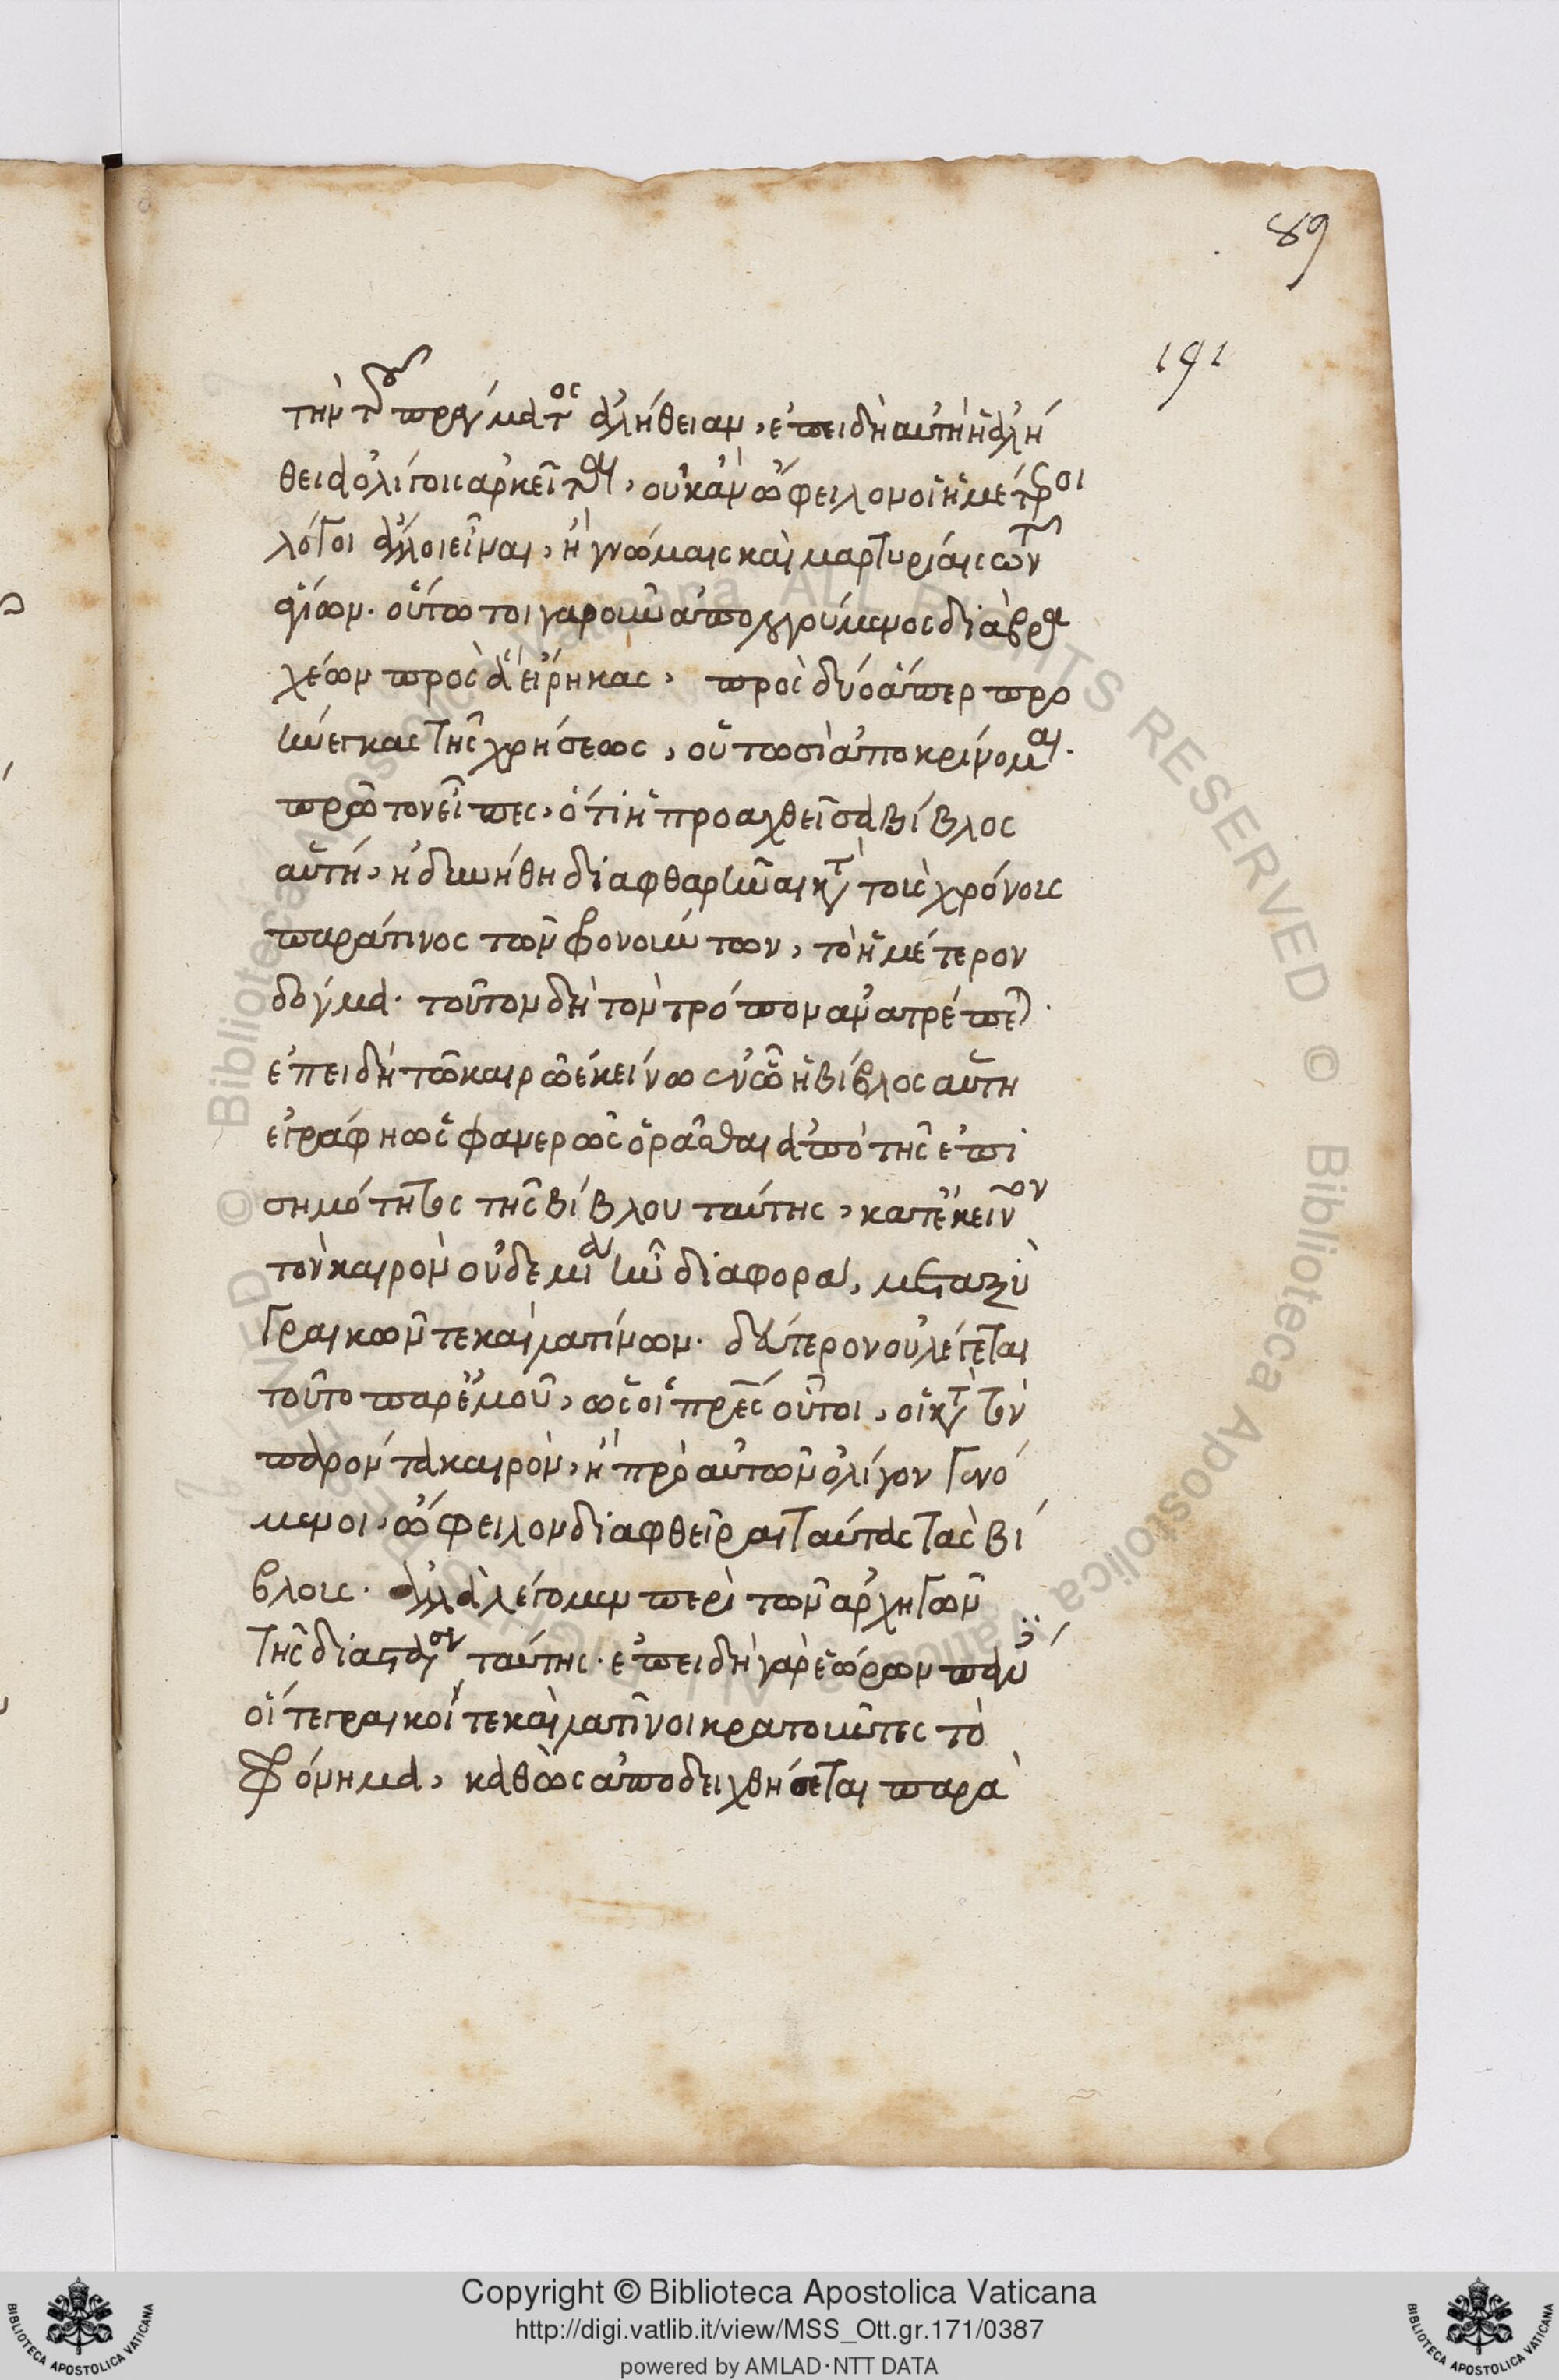 89
191
τὴν τοῦ πράγματος ἀλήθειαν, ἐπειδὴ αὐτὴ ἡ ἀλή
θεια ὀλίγοις ἀρκεῖται, οὐκ ἂν ὤφειλον οἱ ἡμέτεροι
λόγοι ἄλλοι εἶναι, ἢ γνώμαις καὶ μαρτυρίαις τῶν
ἁγίων. οὕτω τοιγαροῦν ἀπολογούμενος διὰ βρα
χέων πρὸς ἃ εἴρηκας, πρὸς δύο ἅπερ προ
ήνεγκας τῆς χρήσεως, οὕτωσὶ ἀποκρίνομαι.
πρῶτον εἶπες, ὅτι ἡ προαχθεῖσα βίβλος
αὕτη, ἠδυνήθη διαφθαρῆναι κατὰ τοῖς χρόνοις
παρά τινος τῶν φρονούντων, τὸ ἡμέτερον
δόγμα. τοῦτον δὴ τὸν τρόπον ἀνατρέπεται.
ἐπειδὴ τῶ καιρῶ ἐκείνω ἐν ὧ ἡ βίβλος αὕτη
ἐγράφη ὡς φανερῶς ὁρᾶσθαι ἀπὸ τῆς ἐπι
σημότητος τῆς βίβλου ταύτης, κατ' ἐκεῖνον
τὸν καιρὸν οὐδεμία ἦν διαφορά, μεταξὺ
Γραικῶν τε καὶ λατίνων. δεύτερον οὐ λέγεται
τοῦτο παρ' ἐμοῦ, ὡς οἱ πρες οὗτοι, οἱ κατὰ τὸν
παρόντα καιρὸν, ἢ πρὸ αὐτῶν ὀλίγον γενό
μενοι, ὤφειλον διαφθεῖραι ταύτας τὰς βί
βλοις. ἀλλὰ λέγομεν περὶ τῶν ἀρχηγῶν
τῆς διαστάσεων ταύτης. ἐπειδὴ γὰρ ἑώρων πολὺ
οἵ τε γραικοί τε καὶ λατῖνοι κρατοῦντες τὸ
φρόνημα, καθὼς ἀποδειχθήσεται παρὰ
Copyright © Biblioteca Apostolica Vaticana
http://digi.vatlib.it/view/MSS_Ott.gr.171/0387
powered by AMLAD·NTT DATA